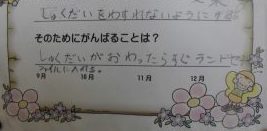 しゅくだいをわすれないようにする
そのためにがんばることは?
しゅくだいがおわったらすぐランドセ
9月 10月 11月 12月